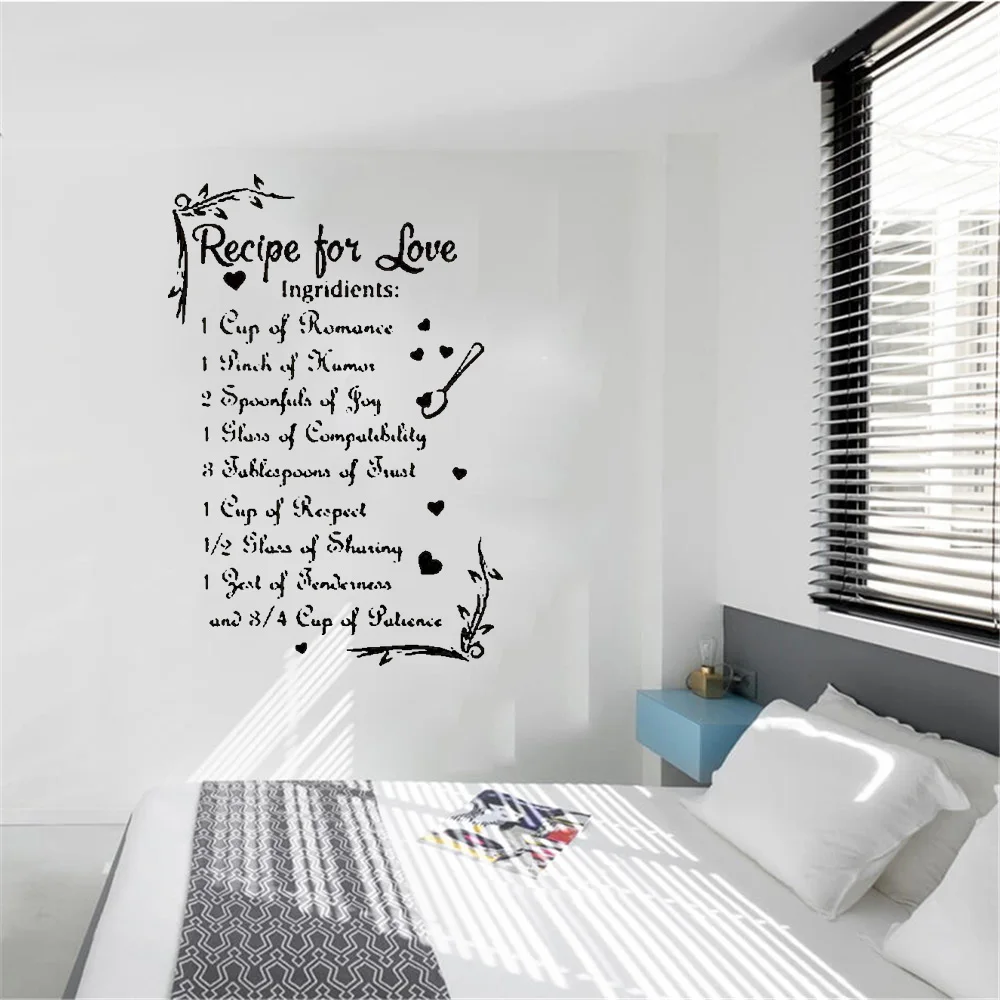 Recipe for Love
Ingridients:
1 Cup of Romance
1 Pinch of Humor
2 Spoonfuls of Joy
1 Glass of Compatibility
3 Tablespoons of Trust
1 Cup of Respect
1/2 Glass of Sharing
1 Zest of Tenderness
and 3/4 Cup of Patience